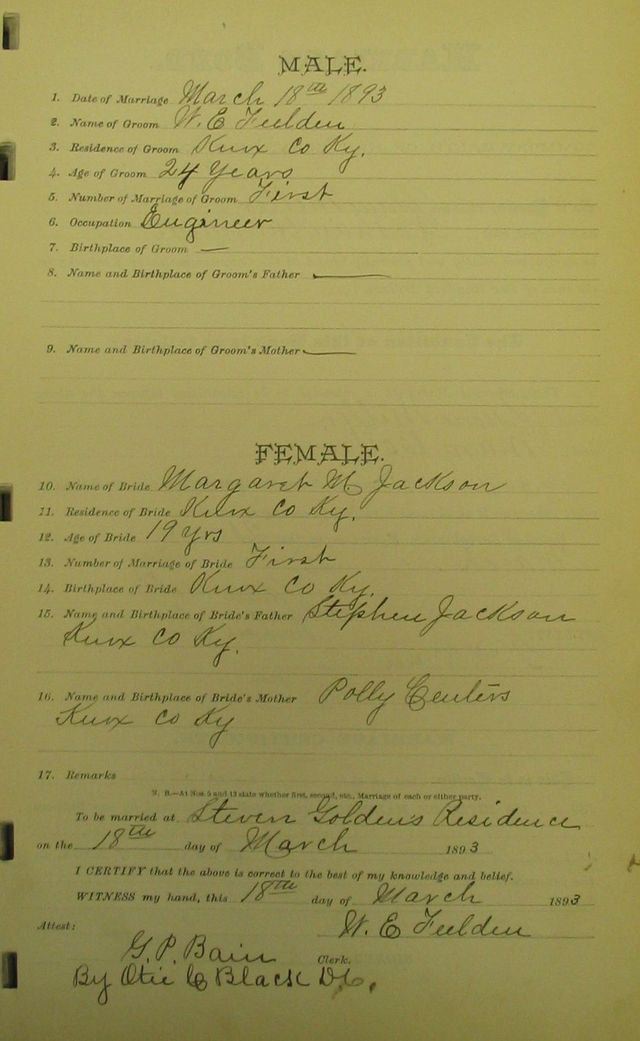 MALE.
1. Date of Marriage March 18th 1893
2. Name of Groom W. E Feelden
3. Residence of Groom Knox Co Ky.
4. Age of Groom 24 years
5. Number of Marriage of Groom First
6. Occupation Engineer
7. Birthplace of Groom —
8. Name and Birthplace of Groom's Father —
9. Name and Birthplace of Groom's Mother —
FEMALE.
10. Name of Bride Margaret M. Jackson
11. Residence of Bride Knox Co Ky.
12. Age of Bride 19 yrs
13. Number of Marriage of Bride First
14. Birthplace of Bride Knox Co Ky.
15. Name and Birthplace of Bride's Father Stephen Jackson
Knox Co Ky.
16. Name and Birthplace of Bride's Mother Polly Centers
Knox Co Ky
17. Remarks
N. B.—At Nos. 5 and 13 state whether first, second, etc., Marriage of each or either party.
To be married at Steven Goldens Residence
on the 18th day of March 1893
I CERTIFY that the above is correct to the best of my knowledge and belief.
WITNESS my hand, this 18th day of March 1893
W. E Feelden
Attest:
G. P. Bain Clerk.
By Otie C Black D.C.